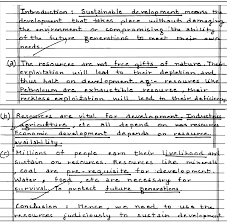 Introduction : Sustainable development means the
development that takes place without damaging
the environment or compromising the ability
of the future generations to meet their own
needs.
(a) The resources are not free gifts of nature. Their
exploitation will lead to their depletion and
thus halt on development. e.g. resources like
Petroleum are exhaustible resource, their
reckless exploitation will lead to their deficiency
(b) Resources are vital for development. Industry,
agriculture, etc all depend on resource
Economic development depends on resource
availability.
(c) Millions of people earn their livelihood and
sustain on resources. Resources like minerals
coal are pre-requisite for development.
Water, Food, etc are necessary for
survival. To protect future generations.
Conclusion : Hence, we need to use the
resources judiciously to sustain development